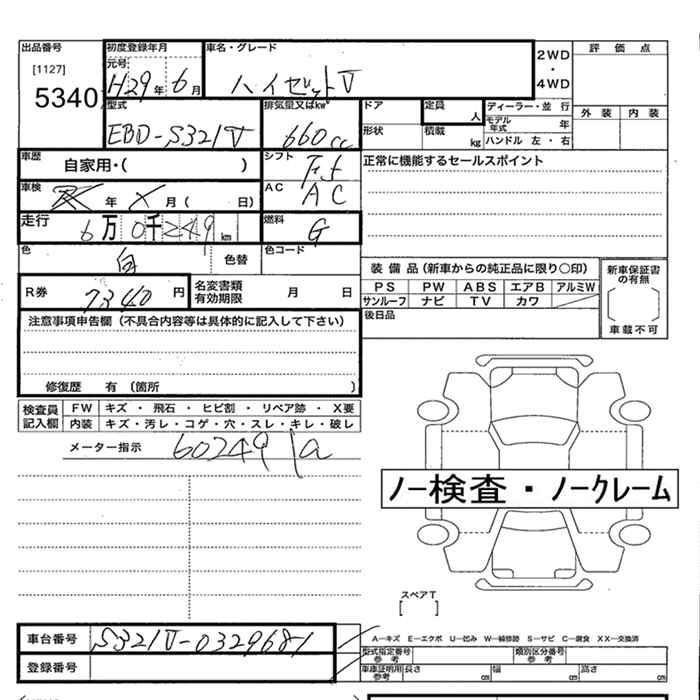 出品番号
[1127]
5340
初度登録年月
元号
H29年 6月
車名・グレード
ハイゼットV
2WD
・
4WD
評価点
外装 内装
型式
EBD-S321V
排気量又はkw
660cc
ドア
形状
定員
人
積載
kg
ディーラー・並行
モデル年式 年
ハンドル 左・右
車歴
自家用・( )
シフト
Fオ
正常に機能するセールスポイント
車検
年 X月( 日)
AC
AC
走行
6万0千249km
燃料
G
色
白
色替
色コード
装備品(新車からの純正品に限り○印)
PS PW ABS エアB アルミW
サンルーフ ナビ TV カワ
新車保証書の有無
[ ]
車載不可
R券
7340円
名変書類有効期限 月 日
後日品
注意事項申告欄(不具合内容等は具体的に記入して下さい)
修復歴 有(箇所 )
検査員記入欄
FW キズ・飛石・ヒビ割・リペア跡・X要
内装 キズ・汚レ・コゲ・穴・スレ・キレ・破レ
メーター指示
60249
ノー検査・ノークレーム
スペアT
[ ]
車台番号
S321V-0329681
登録番号
A―キズ E―エクボ U―凹み W―補修跡 S―サビ C―腐食 XX―交換済
型式指定番号参考
類別区分番号参考
車庫証明用参考
長さ cm
幅 cm
高さ cm